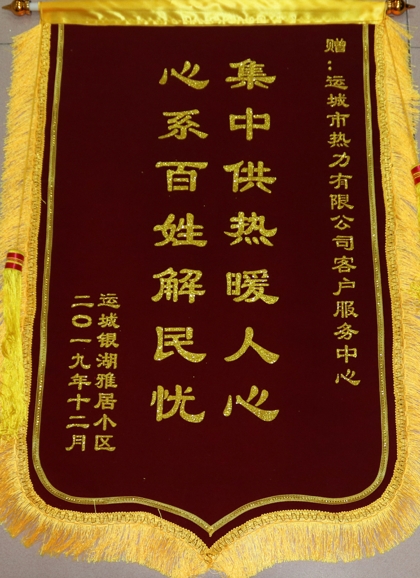 赠：运城市热力有限公司客户服务中心
集中供热暖人心
心系百姓解民忧
运城银湖雅居小区
二〇一九年十二月